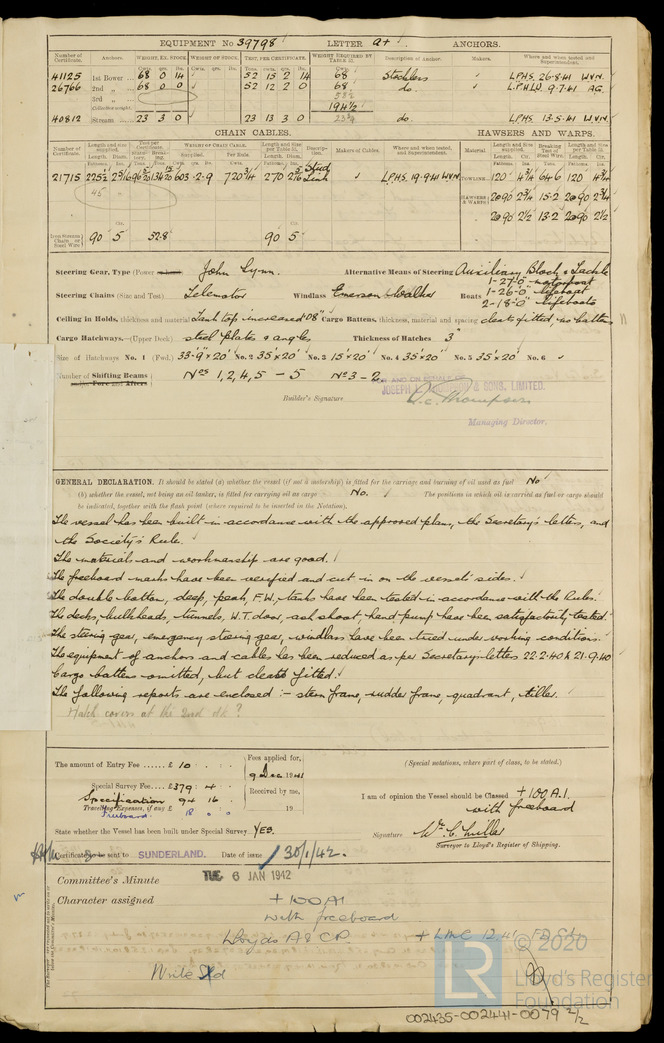 EQUIPMENT No 39798 LETTER a+ ANCHORS.
Number of Certificate. Anchors. WEIGHT, EX. STOCK. WEIGHT OF STOCK. TEST, PER CERTIFICATE. WEIGHT REQUIRED BY TABLE 31. Description of Anchor. Makers. Where and when tested and Superintendent.
41125 1st Bower 68 0 14 52 15 2 14 68 Stockless L.P.H.S. 26.8.41 W.V.N.
26766 2nd " 68 0 0 52 12 2 0 68 do. L.P.H.L.N. 9.7.41 A.G.
3rd "
Collective weight. 194½
40812 Stream 23 3 0 23 13 3 0 do. L.P.H.S. 13.5.41 W.V.N.
CHAIN CABLES. HAWSERS AND WARPS.
21715 225½ 2 3/16 603.2.9 720¾ 270 2 3/16 Stud Link L.P.H.S. 19.9.41 W.V.N. TOWLINE 120 4¾ 64.6 120 4¾
45
HAWSERS & WARPS 2@90 2¾ 15.2 2@90 2¾
2@90 2½ 13.2 2@90 2½
90 5 52.8 90 5
Steering Gear, Type (Power John Lynn. Alternative Means of Steering Auxiliary Block & Tackle
Steering Chains (Size and Test) Telemotor Windlass Emerson Walker Boats 1-27'0" motorboat
1-26'0" lifeboat
2-18'0" lifeboats
Ceiling in Holds, thickness and material Tank top increased .08" Cargo Battens, thickness, material and spacing cleats fitted, no battens
Cargo Hatchways.-(Upper Deck) steel plates & angles Thickness of Hatches 3"
Size of Hatchways No. 1 (Fwd.) 33'-9" x 20' No. 2 35' x 20' No. 3 15' x 20' No. 4 35' x 20' No. 5 35' x 20' No. 6
Number of Shifting Beams Nos 1, 2, 4, 5 - 5 No 3 - 2
FOR AND ON BEHALF OF
JOSEPH L. THOMPSON & SONS, LIMITED.
Builder's Signature
Managing Director.
GENERAL DECLARATION. It should be stated (a) whether the vessel (if not a motorship) is fitted for the carriage and burning of oil used as fuel No
(b) whether the vessel, not being an oil tanker, is fitted for carrying oil as cargo No. The positions in which oil is carried as fuel or cargo should
be indicated, together with the flash point (where required to be inserted in the Notation).
The vessel has been built in accordance with the approved plans, the Secretary's letters, and
the Society's Rule.
The material and workmanship are good.
The freeboard marks have been verified and cut in on the vessels' sides.
The double bottom, deep, peak, F.W., tanks have been tested in accordance with the Rules.
The decks, bulkheads, tunnels, W.T. door, ash shoot, hand pump have been satisfactorily tested.
The steering gear, emergency steering gear, windlass have been tried under working conditions.
The equipment of anchors and cables has been reduced as per Secretary's letters 22.2.40 & 21.9.40
Cargo battens omitted, but cleats fitted.
The following reports are enclosed :- stern frame, rudder frame, quadrant, tiller.
Hatch covers at the 2nd dk ?
The amount of Entry Fee ...... £ 10 : : Fees applied for, 9 Dec 1941 (Special notations, where part of class, to be stated.)
Special Survey Fee .... £379 : 4 : Received by me,
Specification 94 16 I am of opinion the Vessel should be Classed +100 A.1.
Travelling Expenses, if any £ 19 with freeboard
Freeboard 18 0 0
State whether the Vessel has been built under Special Survey YES. Signature Wm. C. Miller
Surveyor to Lloyd's Register of Shipping.
Certificate to be sent to SUNDERLAND. Date of issue 30/1/42.
Committee's Minute TUE 6 JAN 1942
Character assigned +100 A1
with freeboard
Lloyds A & CP + LMC 12.41
Write Sld
LR
© 2020
Lloyd's Register
Foundation
002435-002441-0079 2/2